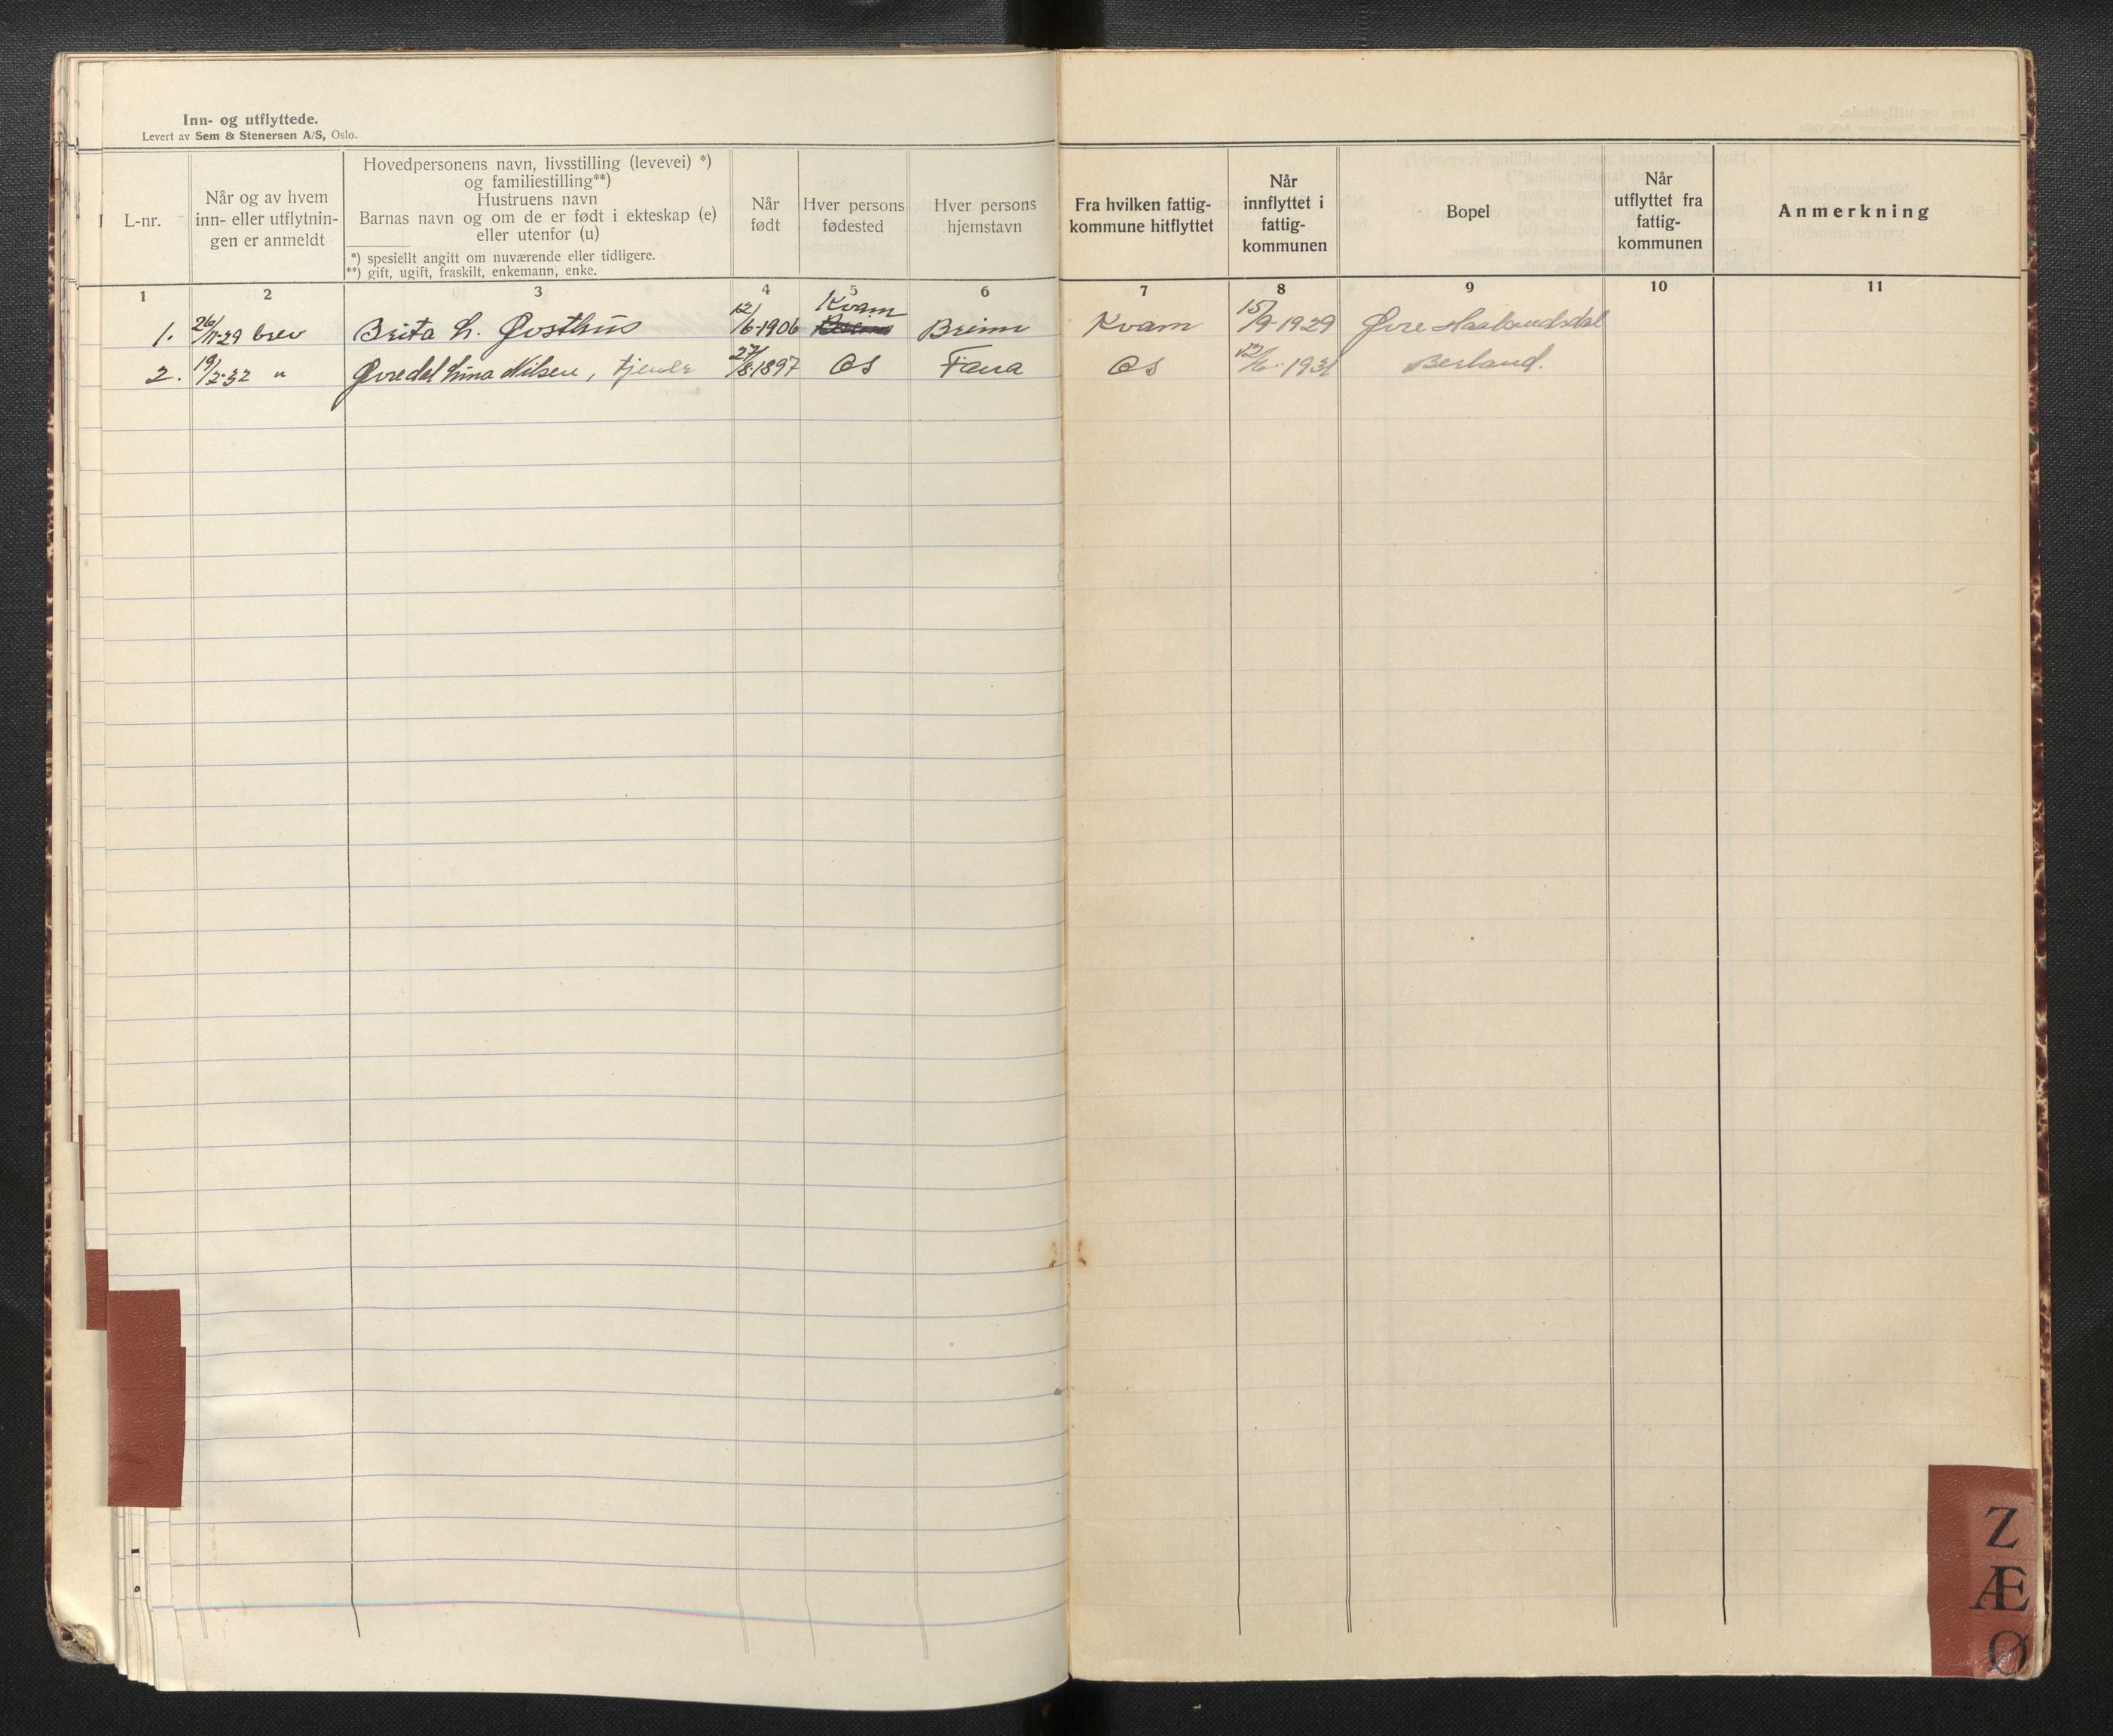 Inn- og utflyttede.
Levert av Sem & Stenersen A/S, Oslo.
L-nr.
Når og av hvem
inn- eller utflytnin-
gen er anmeldt
Hovedpersonens navn, livsstilling (levevei) *)
og familiestilling**)
Hustruens navn
Barnas navn og om de er født i ekteskap (e)
eller utenfor (u)
*) spesiellt angitt om nuværende eller tidligere.
**) gift, ugift, fraskilt, enkemann, enke.
Når
født
Hver persons
fødested
Hver persons
hjemstavn
Fra hvilken fattig-
kommune hitflyttet
Når
innflyttet i
fattig-
kommunen
Bopel
Når
utflyttet fra
fattig-
kommunen
Anmerkning
1 2 3 4 5 6 7 8 9 10 11
Kvam
1. 26/11-29 brev Brita L. Øvsthus 12/6-1906 Kvam 15/9-1929 Øvre
2. 19/2-32 " Øvredal Lina Nilsen, tjener 27/8-1897 Os Fana Os 1931
Z
Æ
Ø